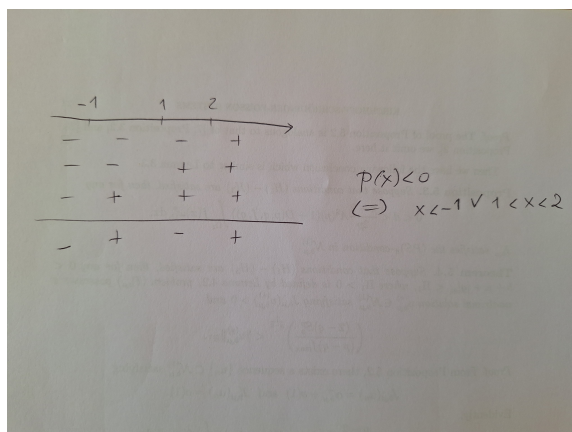 -1 1 2
- - - +
- - + +
- + + +
- + - +
p(x)<0
(=) x<-1 ∨ 1<x<2